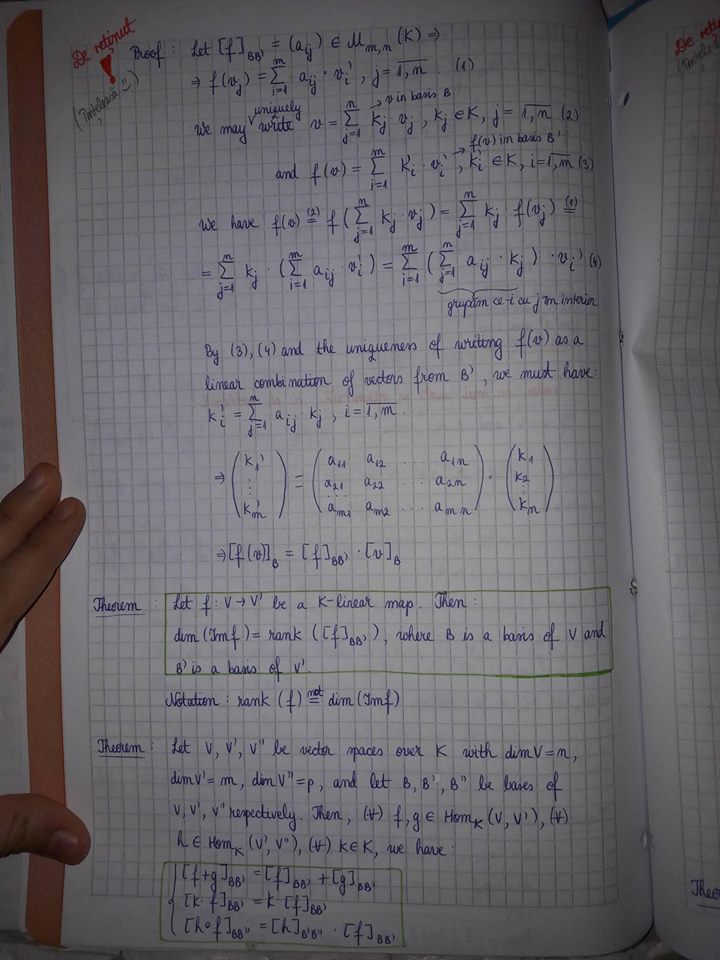 De reținut
!
(Înțeleasă !!)
Proof: Let [f]_BB' = (a_ij) ∈ M_m,n (K) ⇒
⇒ f(v_j) = Σ_{i=1}^{m} a_ij · v_i', j = 1,n. (1)
We may uniquely write v = Σ_{j=1}^{n} k_j · v_j → v in basis B, k_j ∈ K, j = 1,n (2)
and f(v) = Σ_{i=1}^{m} k_i' · v_i' → f(v) in basis B', k_i' ∈ K, i = 1,m (3)
We have f(v) (2)= f(Σ_{j=1}^{n} k_j · v_j) = Σ_{j=1}^{n} k_j · f(v_j) (1)=
= Σ_{j=1}^{n} k_j · (Σ_{i=1}^{m} a_ij · v_i') = Σ_{i=1}^{m} (Σ_{j=1}^{n} a_ij · k_j) · v_i' (4)
grupăm ce-i cu j în interior
By (3), (4) and the uniqueness of writing f(v) as a
linear combination of vectors from B', we must have:
k_i' = Σ_{j=1}^{n} a_ij k_j, i = 1,m.
⇒ (k_1' ⋮ k_m') = (a_11 a_12 ... a_1n a_21 a_22 ... a_2n ... a_m1 a_m2 ... a_mn) · (k_1 k_2 ⋮ k_n)
⇒ [f(v)]_B = [f]_BB' · [v]_B
Theorem: Let f: V → V' be a K-linear map. Then:
dim (Im f) = rank ([f]_BB'), where B is a basis of V and
B' is a basis of V'.
Notation: rank (f) not= dim (Im f)
Theorem: Let V, V', V'' be vector spaces over K with dim V = n,
dim V' = m, dim V'' = p, and let B, B', B'' be bases of
V, V', V'' respectively. Then, (∀) f, g ∈ Hom_K (V, V'), (∀)
h ∈ Hom_K (V', V''), (∀) k ∈ K, we have:
[f+g]_BB' = [f]_BB' + [g]_BB'
[k·f]_BB' = k·[f]_BB'
[h∘f]_BB'' = [h]_B'B'' · [f]_BB'
De
Theo